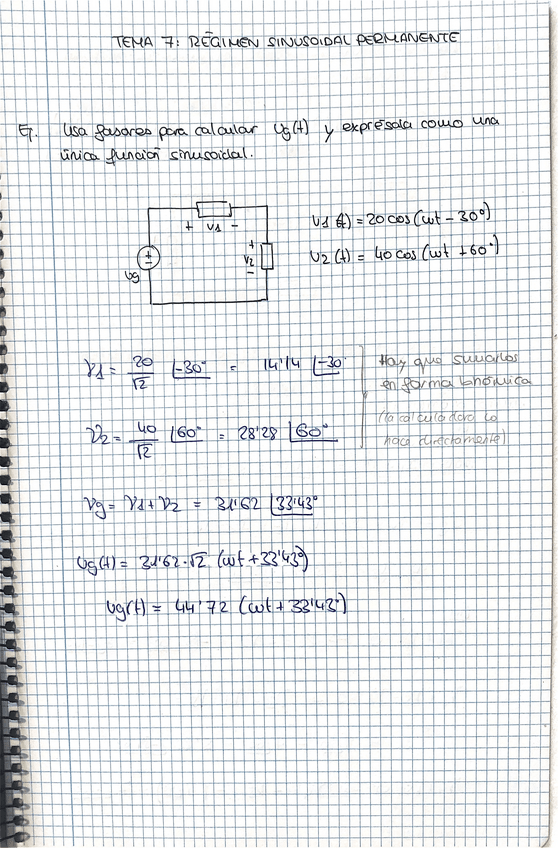 TEMA 7: RÉGIMEN SINUSOIDAL PERMANENTE
Ej. Usa fasores para calcular Vg(t) y exprésala como una
única función sinusoidal.
+ V1 -
V1 (t) = 20 cos (wt - 30°)
+
V2
-
V2 (t) = 40 cos (wt + 60°)
Vg
V1 = 20/√2 ∠-30° = 14'14 ∠-30
Hay que sumarlos
en forma binómica
(la calculadora lo
hace directamente)
V2 = 40/√2 ∠60° = 28'28 ∠60°
Vg = V1 + V2 = 31'62 ∠33'43°
Vg(t) = 31'62·√2 (wt + 33'43°)
Vg(t) = 44'72 (wt + 33'43°)